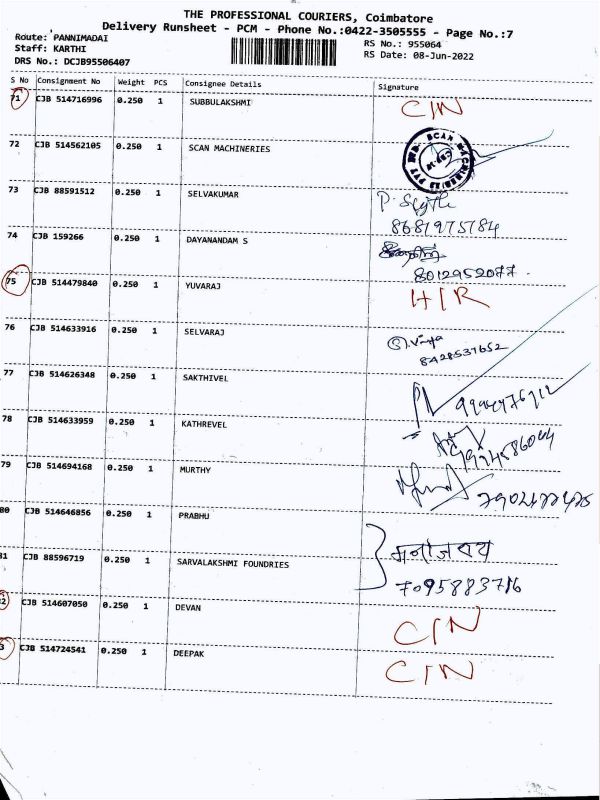 THE PROFESSIONAL COURIERS, Coimbatore
Delivery Runsheet - PCM - Phone No.:0422-3505555 - Page No.:7
Route: PANNIMADAI
Staff: KARTHI
RS No.: 955064
DRS No.: DCJB95506407
RS Date: 08-Jun-2022
S No Consignment No Weight PCS Consignee Details Signature
71 CJB 514716996 0.250 1 SUBBULAKSHMI C/N
72 CJB 514562105 0.250 1 SCAN MACHINERIES
73 CJB 88591512 0.250 1 SELVAKUMAR
8681975784
74 CJB 159266 0.250 1 DAYANANDAM S
8012952077
75 CJB 514479840 0.250 1 YUVARAJ H/R
76 CJB 514633916 0.250 1 SELVARAJ
8428531652
77 CJB 514626348 0.250 1 SAKTHIVEL
78 CJB 514633959 0.250 1 KATHREVEL
79 CJB 514694168 0.250 1 MURTHY
80 CJB 514646856 0.250 1 PRABHU
81 CJB 88596719 0.250 1 SARVALAKSHMI FOUNDRIES
7095883716
82 CJB 514607050 0.250 1 DEVAN C/N
83 CJB 514724541 0.250 1 DEEPAK C/N